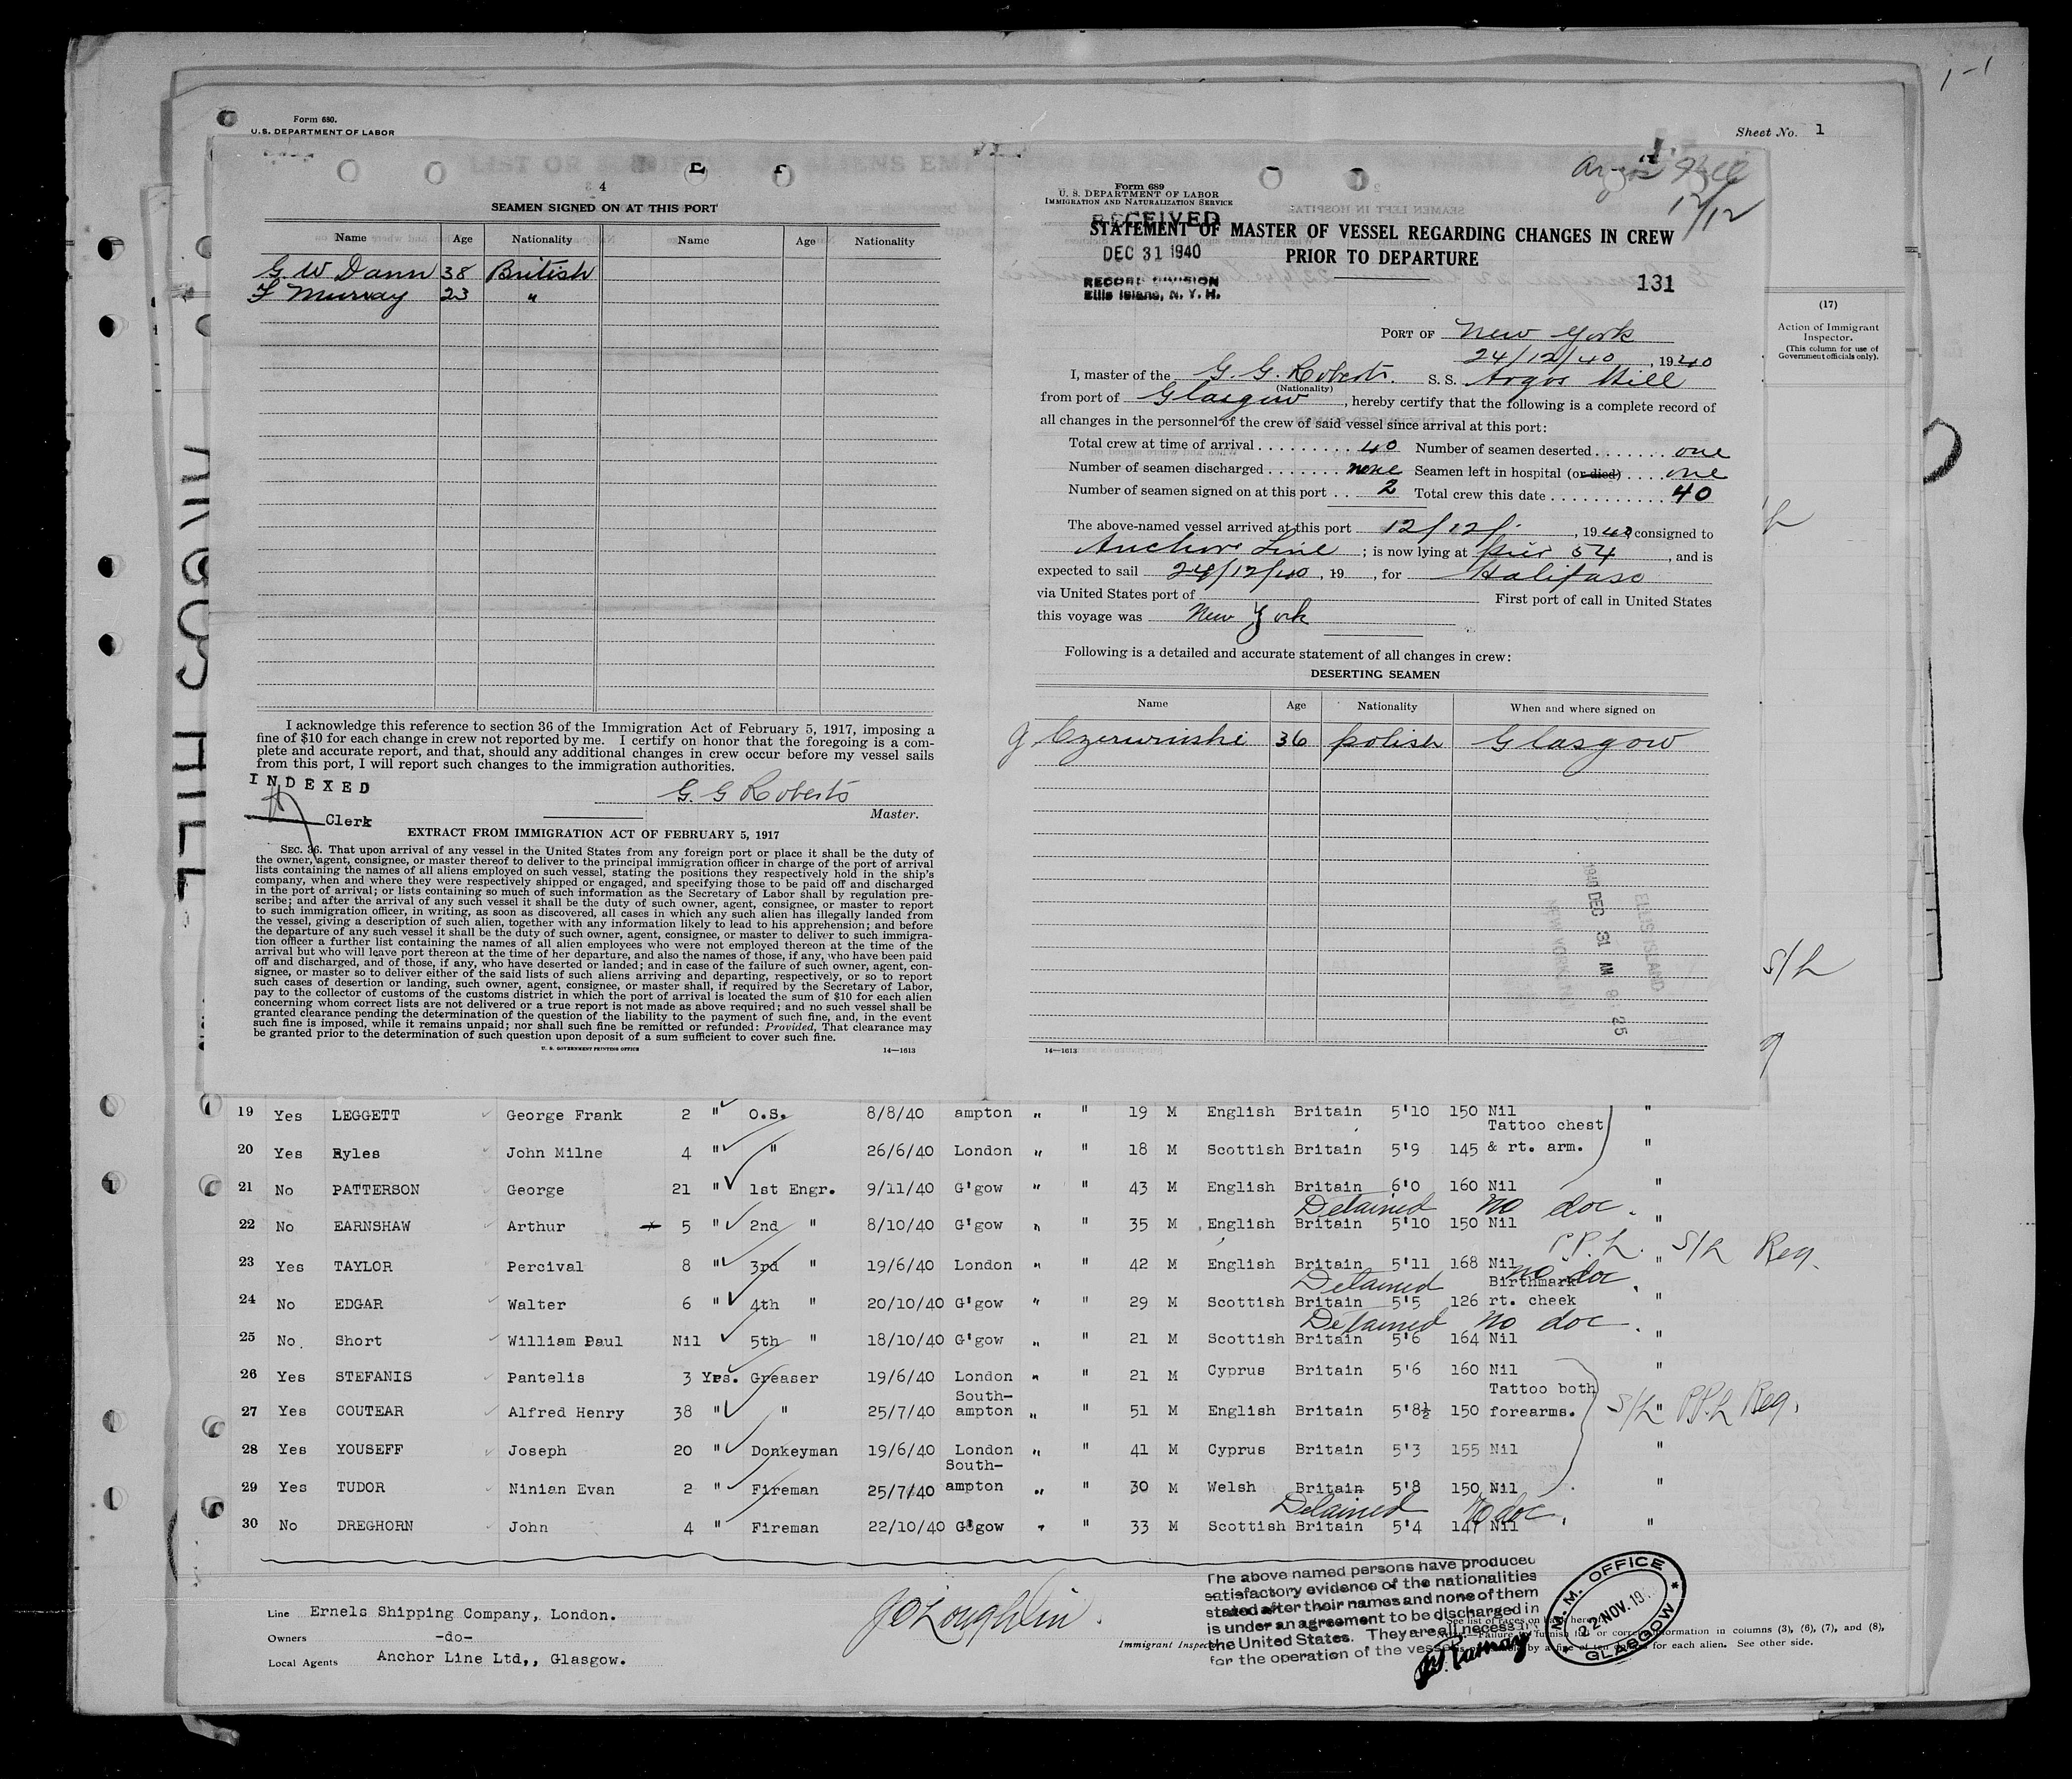 Form 680.
U. S. DEPARTMENT OF LABOR
Sheet No. 1
1-1
4
SEAMEN SIGNED ON AT THIS PORT
Name Age Nationality Name Age Nationality
G. W Dann 38 British
F Murray 23 "
I acknowledge this reference to section 36 of the Immigration Act of February 5, 1917, imposing a
fine of $10 for each change in crew not reported by me. I certify on honor that the foregoing is a com-
plete and accurate report, and that, should any additional changes in crew occur before my vessel sails
from this port, I will report such changes to the immigration authorities.
INDEXED
Clerk
G. G Roberts
Master.
EXTRACT FROM IMMIGRATION ACT OF FEBRUARY 5, 1917
SEC. 36. That upon arrival of any vessel in the United States from any foreign port or place it shall be the duty of
the owner, agent, consignee, or master thereof to deliver to the principal immigration officer in charge of the port of arrival
lists containing the names of all aliens employed on such vessel, stating the positions they respectively hold in the ship's
company, when and where they were respectively shipped or engaged, and specifying those to be paid off and discharged
in the port of arrival; or lists containing so much of such information as the Secretary of Labor shall by regulation pre-
scribe; and after the arrival of any such vessel it shall be the duty of such owner, agent, consignee, or master to report
to such immigration officer, in writing, as soon as discovered, all cases in which any such alien has illegally landed from
the vessel, giving a description of such alien, together with any information likely to lead to his apprehension; and before
the departure of any such vessel it shall be the duty of such owner, agent, consignee, or master to deliver to such immigra-
tion officer a further list containing the names of all alien employees who were not employed thereon at the time of the
arrival but who will leave port thereon at the time of her departure, and also the names of those, if any, who have been paid
off and discharged, and of those, if any, who have deserted or landed; and in case of the failure of such owner, agent, con-
signee, or master so to deliver either of the said lists of such aliens arriving and departing, respectively, or so to report
such cases of desertion or landing, such owner, agent, consignee, or master shall, if required by the Secretary of Labor,
pay to the collector of customs of the customs district in which the port of arrival is located the sum of $10 for each alien
concerning whom correct lists are not delivered or a true report is not made as above required; and no such vessel shall be
granted clearance pending the determination of the question of the liability to the payment of such fine, and, in the event
such fine is imposed, while it remains unpaid; nor shall such fine be remitted or refunded: Provided, That clearance may
be granted prior to the determination of such question upon deposit of a sum sufficient to cover such fine.
U. S. GOVERNMENT PRINTING OFFICE 14—1613
Argos Hill
12/12
Form 689
U. S. DEPARTMENT OF LABOR
IMMIGRATION AND NATURALIZATION SERVICE
RECEIVED
STATEMENT OF MASTER OF VESSEL REGARDING CHANGES IN CREW
PRIOR TO DEPARTURE
DEC 31 1940
RECORD DIVISION
Ellis Island, N. Y. H.
131
PORT OF New York
24/12/40, 1940
I, master of the G. G. Roberts. S. S. Argos Hill
(Nationality)
from port of Glasgow, hereby certify that the following is a complete record of
all changes in the personnel of the crew of said vessel since arrival at this port:
Total crew at time of arrival 40 Number of seamen deserted one
Number of seamen discharged none Seamen left in hospital (or died) one
Number of seamen signed on at this port 2 Total crew this date 40
The above-named vessel arrived at this port 12/12/, 1940 consigned to
Anchor Line; is now lying at pier 54, and is
expected to sail 24/12/40, 19 , for Halifax
via United States port of First port of call in United States
this voyage was New York
Following is a detailed and accurate statement of all changes in crew:
DESERTING SEAMEN
Name Age Nationality When and where signed on
36 polish Glasgow
1940 DEC 31 AM 9:25
ELLIS ISLAND
14—1613
(17)
Action of Immigrant
Inspector.
(This column for use of
Government officials only).
S/L
ARGOS HILL
19 Yes LEGGETT George Frank 2 " O.S. 8/8/40 ampton " " 19 M English Britain 5'10 150 Nil "
20 Yes Ryles John Milne 4 " " 26/6/40 London " " 18 M Scottish Britain 5'9 145 Tattoo chest & rt. arm. "
21 No PATTERSON George 21 " 1st Engr. 9/11/40 G'gow " " 43 M English Britain 6'0 160 Nil "
Detained no doc.
22 No EARNSHAW Arthur 5 " 2nd " 8/10/40 G'gow " " 35 M English Britain 5'10 150 Nil "
P.P.L. S/L Req.
23 Yes TAYLOR Percival 8 " 3rd " 19/6/40 London " " 42 M English Britain 5'11 168 Nil "
Detained no doc.
24 No EDGAR Walter 6 " 4th " 20/10/40 G'gow " " 29 M Scottish Britain 5'5 126 Birthmark rt. cheek "
Detained no doc.
25 No. Short William Paul Nil 5th " 18/10/40 G'gow " " 21 M Scottish Britain 5'6 164 Nil "
26 Yes STEFANIS Pantelis 3 Yrs. Greaser 19/6/40 London " " 21 M Cyprus Britain 5'6 160 Nil "
27 Yes COUTEAR Alfred Henry 38 " " 25/7/40 South-ampton " " 51 M English Britain 5'8½ 150 Tattoo both forearms. " S/L P.P.L Req.
28 Yes YOUSEFF Joseph 20 " Donkeyman 19/6/40 London " " 41 M Cyprus Britain 5'3 155 Nil "
29 Yes TUDOR Ninian Evan 2 " Fireman 25/7/40 South-ampton " " 30 M Welsh Britain 5'8 150 Nil "
Detained No doc.
30 No DREGHORN John 4 " Fireman 22/10/40 G'gow " " 33 M Scottish Britain 5'4 147 Nil "
Line Ernels Shipping Company, London.
Owners -do-
Local Agents Anchor Line Ltd,, Glasgow.
J O'Loughlin.
Immigrant Inspector
The above named persons have produced
satisfactory evidence of the nationalities
stated after their names and none of them
is under an agreement to be discharged in
the United States. They are all necess
for the operation of the vessel
M. M. OFFICE
22 NOV. 19
GLASGOW
See list of races on back hereof.
Failure to furnish full or correct information in columns (3), (6), (7), and (8),
is punishable by a fine of ten dollars for each alien. See other side.